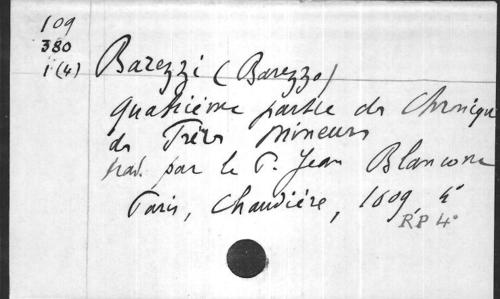 109
380
1(4)
Barezzi (Barezzo)
quatrième partie des Chroniques
des Frères Mineurs
trad. par le P. Jean Blancone
Paris, Chaudière, 1609, 4°
RP 4°